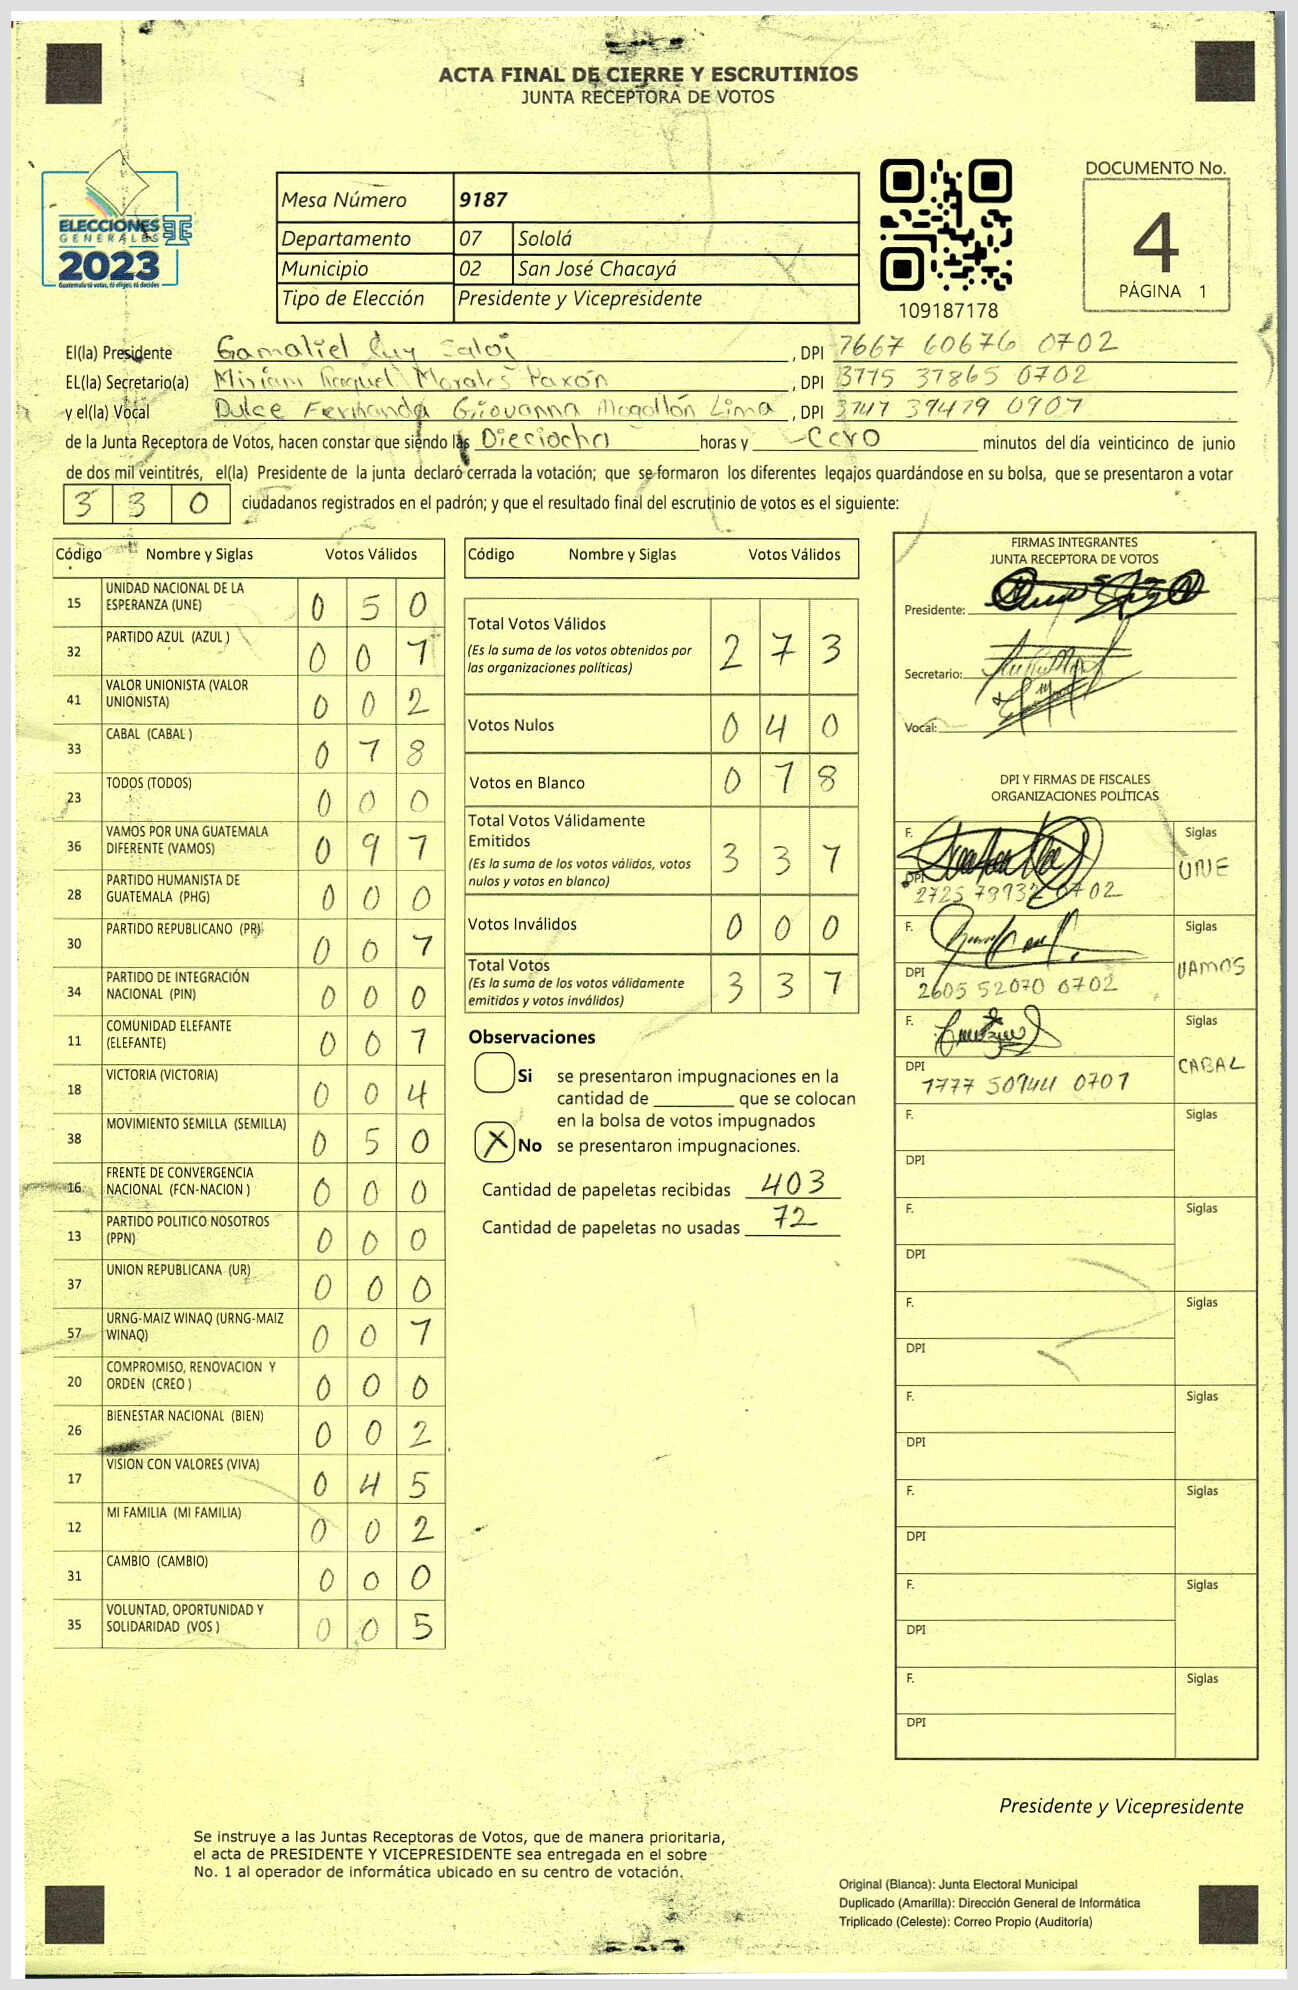 ACTA FINAL DE CIERRE Y ESCRUTINIOS
JUNTA RECEPTORA DE VOTOS
ELECCIONES
GENERALES
2023
Guatemala tú votas, tú eliges, tú decides
Mesa Número 9187
Departamento 07 Sololá
Municipio 02 San José Chacayá
Tipo de Elección Presidente y Vicepresidente
109187178
DOCUMENTO No.
4
PÁGINA 1
El(la) Presidente Gamaliel , DPI 1661 60616 0702
EL(la) Secretario(a) Miriam Raquel Morales Paxón , DPI 3115 31865 0702
y el(la) Vocal Dulce Fernanda Giovanna Mogollón Lima , DPI 3141 39419 0901
de la Junta Receptora de Votos, hacen constar que siendo las Dieciocho horas y -Cero minutos del día veinticinco de junio
de dos mil veintitrés, el(la) Presidente de la junta declaró cerrada la votación; que se formaron los diferentes legajos guardándose en su bolsa, que se presentaron a votar
3 3 0 ciudadanos registrados en el padrón; y que el resultado final del escrutinio de votos es el siguiente:
Código Nombre y Siglas Votos Válidos
15 UNIDAD NACIONAL DE LA ESPERANZA (UNE) 0 5 0
32 PARTIDO AZUL (AZUL ) 0 0 1
41 VALOR UNIONISTA (VALOR UNIONISTA) 0 0 2
33 CABAL (CABAL ) 0 1 8
23 TODOS (TODOS) 0 0 0
36 VAMOS POR UNA GUATEMALA DIFERENTE (VAMOS) 0 9 1
28 PARTIDO HUMANISTA DE GUATEMALA (PHG) 0 0 0
30 PARTIDO REPUBLICANO (PR) 0 0 1
34 PARTIDO DE INTEGRACIÓN NACIONAL (PIN) 0 0 0
11 COMUNIDAD ELEFANTE (ELEFANTE) 0 0 1
18 VICTORIA (VICTORIA) 0 0 4
38 MOVIMIENTO SEMILLA (SEMILLA) 0 5 0
16 FRENTE DE CONVERGENCIA NACIONAL (FCN-NACION ) 0 0 0
13 PARTIDO POLITICO NOSOTROS (PPN) 0 0 0
37 UNION REPUBLICANA (UR) 0 0 0
57 URNG-MAIZ WINAQ (URNG-MAIZ WINAQ) 0 0 1
20 COMPROMISO, RENOVACION Y ORDEN (CREO ) 0 0 0
26 BIENESTAR NACIONAL (BIEN) 0 0 2
17 VISION CON VALORES (VIVA) 0 4 5
12 MI FAMILIA (MI FAMILIA) 0 0 2
31 CAMBIO (CAMBIO) 0 0 0
35 VOLUNTAD, OPORTUNIDAD Y SOLIDARIDAD (VOS ) 0 0 5
Código Nombre y Siglas Votos Válidos
Total Votos Válidos 2 7 3
(Es la suma de los votos obtenidos por
las organizaciones políticas)
Votos Nulos 0 4 0
Votos en Blanco 0 1 8
Total Votos Válidamente
Emitidos 3 3 1
(Es la suma de los votos válidos, votos
nulos y votos en blanco)
Votos Inválidos 0 0 0
Total Votos 3 3 1
(Es la suma de los votos válidamente
emitidos y votos inválidos)
Observaciones
Si se presentaron impugnaciones en la
cantidad de ________ que se colocan
en la bolsa de votos impugnados
X No se presentaron impugnaciones.
Cantidad de papeletas recibidas 403
Cantidad de papeletas no usadas 72
FIRMAS INTEGRANTES
JUNTA RECEPTORA DE VOTOS
Presidente:
Secretario:
Vocal:
DPI Y FIRMAS DE FISCALES
ORGANIZACIONES POLÍTICAS
F. Siglas
UNE
DPI
2725 78932 0702
F. Siglas
VAMOS
DPI
2605 52070 0702
F. Siglas
CABAL
DPI
1777 50944 0701
F. Siglas
DPI
F. Siglas
DPI
F. Siglas
DPI
F. Siglas
DPI
F. Siglas
DPI
F. Siglas
DPI
F. Siglas
DPI
Presidente y Vicepresidente
Se instruye a las Juntas Receptoras de Votos, que de manera prioritaria,
el acta de PRESIDENTE Y VICEPRESIDENTE sea entregada en el sobre
No. 1 al operador de informática ubicado en su centro de votación.
Original (Blanca): Junta Electoral Municipal
Duplicado (Amarilla): Dirección General de Informática
Triplicado (Celeste): Correo Propio (Auditoría)